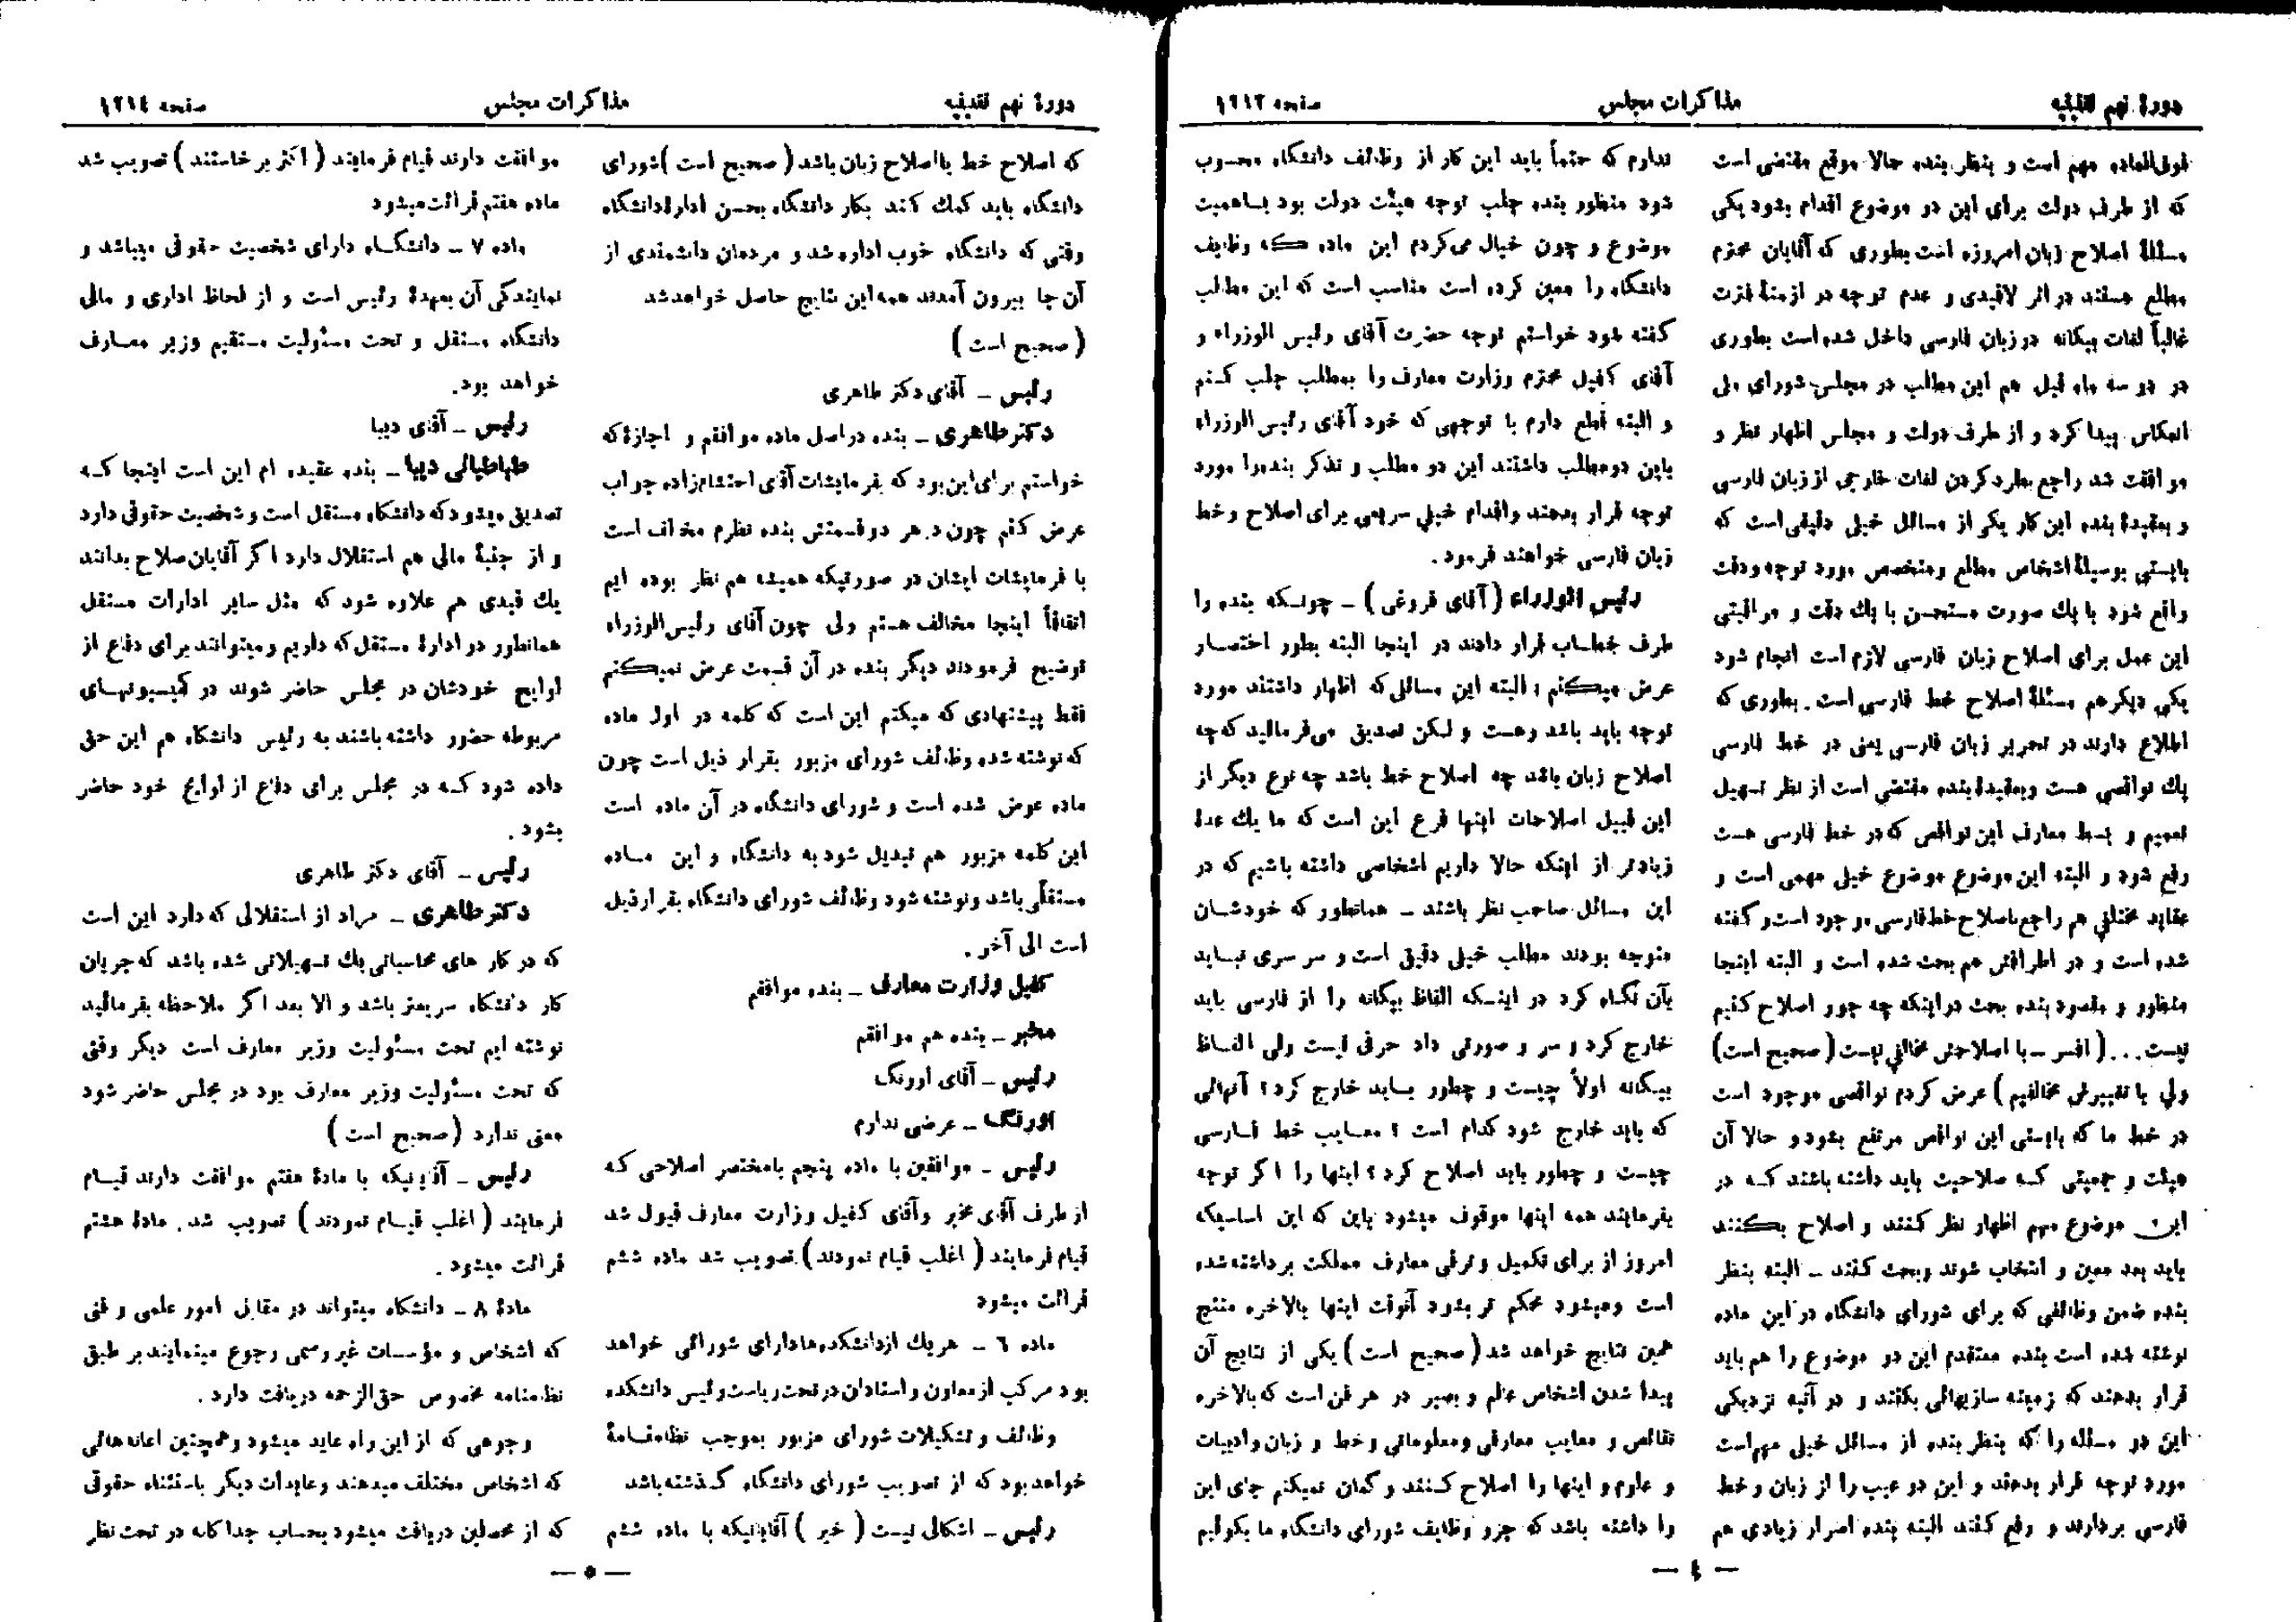 دورهٔ نهم تقنینیه
مذاکرات مجلس
صفحه ۱۲۱۳
فوق‌العاده مهم است و بنظر بنده حالا موقع مقتضی است
که از طرف دولت برای این دو موضوع اقدام بشود یکی
مسئلهٔ اصلاح زبان امروزه است بطوری که آقایان محترم
مطلع هستند در اثر لاقیدی و عدم توجه در ازمنهٔ فترت
غالباً لغات بیگانه در زبان فارسی داخل شده است بطوری
در دو سه ماه قبل هم این مطلب در مجلس شورای ملی
انعکاس پیدا کرد و از طرف دولت و مجلس اظهار نظر و
موافقت شد راجع بطرد کردن لغات خارجی از زبان فارسی
و بعقیدهٔ بنده این کار یکی از مسائل خیلی دقیقی است که
بایستی بوسیلهٔ اشخاص مطلع و متخصص مورد توجه و دقت
واقع شود با یك صورت مستحسن با یك دقت و مراقبتی
این عمل برای اصلاح زبان فارسی لازم است انجام شود
یکی دیگر هم مسئلهٔ اصلاح خط فارسی است. بطوری که
اطلاع دارند در تحریر زبان فارسی یعنی در خط فارسی
یك نواقصی هست و بعقیدهٔ بنده مقتضی است از نظر تسهیل
تعمیم و بسط معارف این نواقص که در خط فارسی هست
رفع شود و البته این موضوع موضوع خیلی مهمی است و
عقاید مختلفی هم راجع باصلاح خط فارسی موجود است و گفته
شده است و در اطرافش هم بحث شده است و البته اینجا
منظور و مقصود بنده بحث در اینکه چه جور اصلاح کنیم
نیست... (افسر ـ با اصلاحش مخالفی نیست (صحیح است)
ولی با تغییرش مخالفیم) عرض کردم نواقصی موجود است
در خط ما که بایستی این نواقص مرتفع بشود و حالا آن
هیئت و جمعیتی کـه صلاحیت باید داشته باشند کـه در
این موضوع مهم اظهار نظر کنند و اصلاح بکنند
باید بعد معین و انتخاب شوند و بحث کنند ـ البته بنظر
بنده ضمن وظائفی که برای شورای دانشگاه در این ماده
نوشته شده است بنده معتقدم این دو موضوع را هم باید
قرار بدهند که زمینه سازیهائی بکنند و در آتیه نزدیکی
این دو مسئله را که بنظر بنده از مسائل خیلی مهم است
مورد توجه قرار بدهند و این دو عیب را از زبان و خط
فارسی بردارند و رفع کنند البته بنده اصرار زیادی هم
ندارم که حتماً باید این کار از وظائف دانشگاه محسوب
شود منظور بنده جلب توجه هیئت دولت بود بـاهمیت
موضوع و چون خیال می‌کردم این ماده که وظایف
دانشگاه را معین کرده است مناسب است که این مطالب
گفته شود خواستم توجه حضرت آقای رئیس الوزراء و
آقای کفیل محترم وزارت معارف را بمطلب جلب کنم
و البته قطع دارم با توجهی که خود آقای رئیس الوزراء
باین دو مطلب داشتند این دو مطلب و تذکر بنده را مورد
توجه قرار بدهند و اقدام خیلی سریعی برای اصلاح و خط
زبان فارسی خواهند فرمود.
رئیس الوزراء (آقای فروغی) ـ چونـکه بنده را
طرف خطـاب قرار دادند در اینجا البته بطور اختصـار
عرض میکنم ؛ البته این مسائلی که اظهار داشتند مورد
توجه باید باشد و هست و لکن تصدیق می‌فرمائید که چه
اصلاح زبان باشد چه اصلاح خط باشد چه نوع دیگر از
این قبیل اصلاحات اینها فرع این است که ما یك عدهٔ
زیادتر از اینکه حالا داریم اشخاصی داشته باشیم که در
این مسائل صاحب نظر باشند ـ همانطور که خودشـان
متوجه بودند مطلب خیلی دقیق است و سر سری نبـاید
بآن نگاه کرد در اینـکه الفاظ بیگانه را از فارسی باید
خارج کرد و سر و صورتی داد حرفی نیست ولی الفـاظ
بیگانه اولاً چیست و چطور بـاید خارج کرد؟ آنهائی
که باید خارج شود کدام است ؟ معـایب خط فـارسی
چیست و چطور باید اصلاح کرد؟ اینها را اگر توجه
بفرمایند همه اینها موقوف میشود باین که این اساسیکه
امروز از برای تکمیل و ترقی معارف مملکت برداشته شده
است و میشود محکم تر بشود آنوقت اینها بالاخره منتج
همین نتایج خواهد شد (صحیح است) یکی از نتایج آن
پیدا شدن اشخاص عالم و بصیر در هر فن است که بالاخره
نقائص و معایب معارفی و معلوماتی و خط و زبان و ادبیات
و علوم و اینها را اصلاح کـنند و گمان نمیکنم جای این
را داشته باشد که جزو وظایف شورای دانشگاه ما بگوئیم
— ٤ —
دورهٔ نهم تقنینیه
مذاکرات مجلس
صفحه ۱۲۱٤
که اصلاح خط یا اصلاح زبان باشد (صحیح است) شورای
دانشگاه باید کمك کند بکار دانشگاه بحسن ادارهٔ دانشگاه
وقتی که دانشگاه خوب اداره شد و مردمان دانشمندی از
آن جا بیرون آمدند همه این نتایج حاصل خواهد شد
(صحیح است)
رئیس ـ آقای دکتر طاهری
دکتر طاهری ـ بنده در اصل ماده موافقم و اجازهٔ که
خواستم برای این بود که بفرمایشات آقای احتشام‌زاده جواب
عرض کنم چون در هر دو قسمتش بنده نظرم مخالف است
با فرمایشات ایشان در صورتیکه همیشه هم نظر بوده ایم
اتفاقاً اینجا مخالف هستم ولی چون آقای رئیس الوزراء
توضیح فرمودند دیگر بنده در آن قسمت عرض نمیکنم
فقط پیشنهادی که میکنم این است که کلمه در اول ماده
که نوشته شده وظائف شورای مزبور بقرار ذیل است چون
ماده عوض شده است و شورای دانشگاه در آن ماده است
این کلمه مزبور هم تبدیل شود به دانشگاه و این مـاده
مستقلی باشد و نوشته شود وظائف شورای دانشگاه بقرار ذیل
است الی آخر.
کفیل وزارت معارف ـ بنده موافقم
مخبر ـ بنده هم موافقم
رئیس ـ آقای اورنگ
اورنگ ـ عرضی ندارم
رئیس ـ موافقین با ماده پنجم بامختصر اصلاحی کـه
از طرف آقای مخبر وآقای کفیل وزارت معارف قبول شد
قیام فرمایند (اغلب قیام نمودند) تصویب شد ماده ششم
قرائت میشود
ماده ٦ ـ هریك از دانشکده‌ها دارای شورائی خواهد
بود مرکب از معاون و استادان در تحت ریاست رئیس دانشکده
وظائف و تشکیلات شورای مزبور بموجب نظامنـامهٔ
خواهد بود که از تصویب شورای دانشگاه گـذشته باشد
رئیس ـ اشکالی نیست (خیر) آقایانیکه با ماده ششم
موافقت دارند قیام فرمایند (اکثر برخاستند) تصویب شد
ماده هفتم قرائت میشود
ماده ۷ ـ دانشگـاه دارای شخصیت حقوقی میباشد و
نمایندگی آن بعهدهٔ رئیس است و از لحاظ اداری و مالی
دانشگاه مستقل و تحت مسئولیت مستقیم وزیر معـارف
خواهد بود.
رئیس ـ آقای دیبا
طباطبائی دیبا ـ بنده عقیده ام این است اینجا کـه
تصدیق میشود که دانشگاه مستقل است و شخصیت حقوقی دارد
و از جنبهٔ مالی هم استقلال دارد اگر آقایان صلاح بدانند
یك قیدی هم علاوه شود که مثل سایر ادارات مستقل
همانطور در ادارهٔ مستقل که داریم و میتوانند برای دفاع از
لوایح خودشان در مجلس حاضر شوند در کمیسیونهـای
مربوطه حضور داشته باشند به رئیس دانشگاه هم این حق
داده شود کـه در مجلس برای دفاع از لوایح خود حاضر
بشود.
رئیس ـ آقای دکتر طاهری
دکتر طاهری ـ مراد از استقلالی که دارد این است
که در کار های محاسباتی یك تسهیلاتی شده باشد که جریان
کار دانشگاه سریعتر باشد و الا بعد اگر ملاحظه بفرمائید
نوشته ایم تحت مسئولیت وزیر معارف است دیگر وقتی
که تحت مسئولیت وزیر معارف بود در مجلس حاضر شود
معنی ندارد (صحیح است)
رئیس ـ آقایانیکه با مادهٔ هفتم موافقت دارند قیـام
فرمایند (اغلب قیـام نمودند) تصویب شد. مادهٔ هشتم
قرائت میشود.
مادهٔ ۸ ـ دانشگاه میتواند در مقابل امور علمی و فنی
که اشخاص و مؤسسات غیر رسمی رجوع مینمایند بر طبق
نظامنامه مخصوص حق‌الزحمه دریافت دارد.
وجوهی که از این راه عاید میشود و همچنین اعانه هائی
که اشخاص مختلف میدهند و عایدات دیگر باستثناء حقوقی
که از محصلین دریافت میشود بحساب جداگانه در تحت نظر
— ٥ —